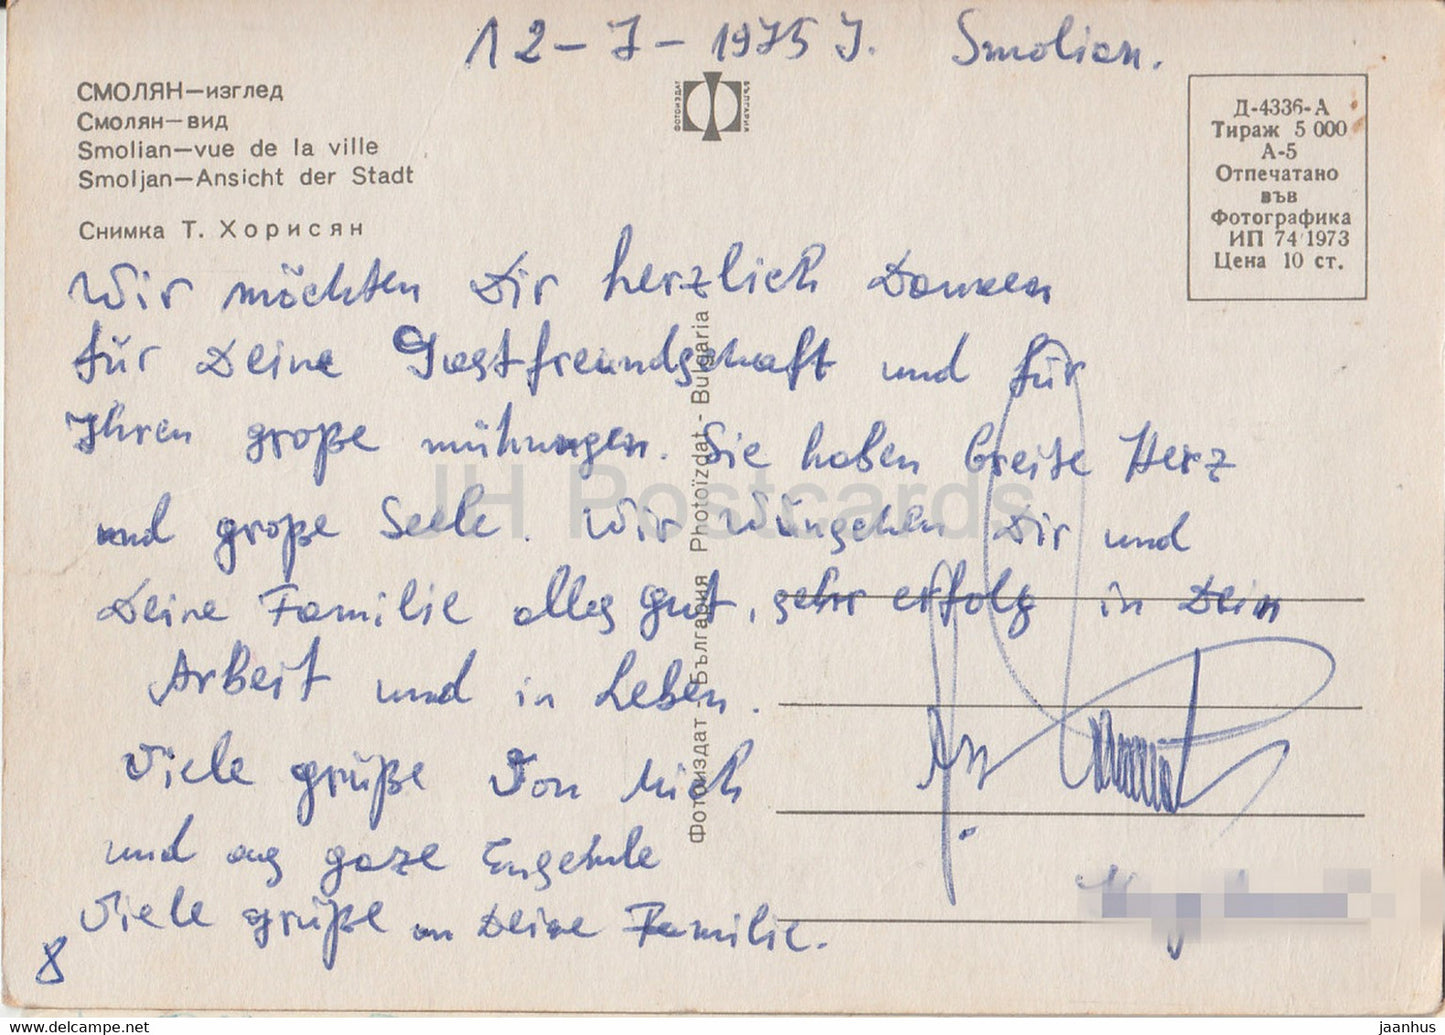 12-7-1975 J. Smolian.
СМОЛЯН—изглед
Смолян—вид
Smolian—vue de la ville
Smoljan—Ansicht der Stadt
Снимка Т. Хорисян
ФОТОИЗДАТ
БЪЛГАРИЯ
Д-4336-А
Тираж 5 000
А-5
Отпечатано
във
Фотографика
ИП 74 1973
Цена 10 ст.
Wir möchten Dir herzlich Danken
für Deine Gastfreundschaft und für
Ihren große mühungen. Sie haben breite Herz
und große Seele. Wir Wüngehen Dir und
Deine Familie alles gut, sehr erfolg in Dein
Arbeit und in Leben.
Viele grüße Von Mich
und aus gaze
Viele grüße an Deine Familie.
8
Фотоиздат - България Photoïzdat - Bulgaria
JH Postcards
www.delcampe.net
jaanhus